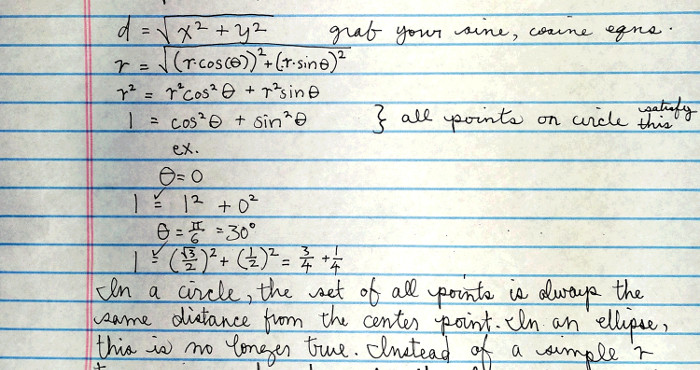 d = √(x² + y²) grab your sine, cosine eqns.
r = √((r·cos(θ))² + (r·sinθ)²)
r² = r²cos²θ + r²sinθ
1 = cos²θ + sin²θ } all points on circle satisfy this
ex.
θ = 0
1 ≟ 1² + 0²
θ = π/6 = 30°
1 ≟ (√3/2)² + (1/2)² = 3/4 + 1/4
In a circle, the set of all points is always the
same distance from the center point. In an ellipse,
this is no longer true. Instead of a simple r